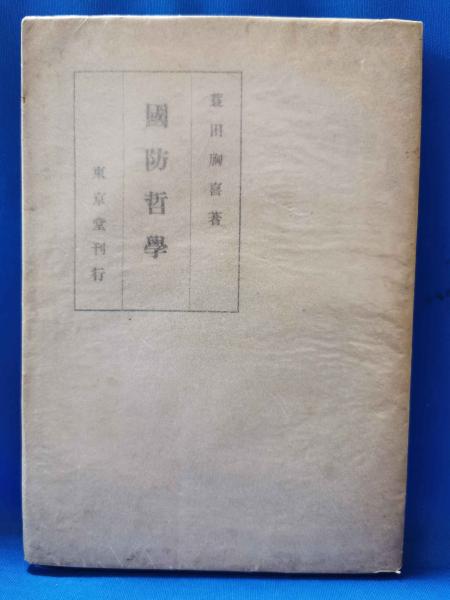 蓑田胸喜著
國防哲學
東京堂刊行